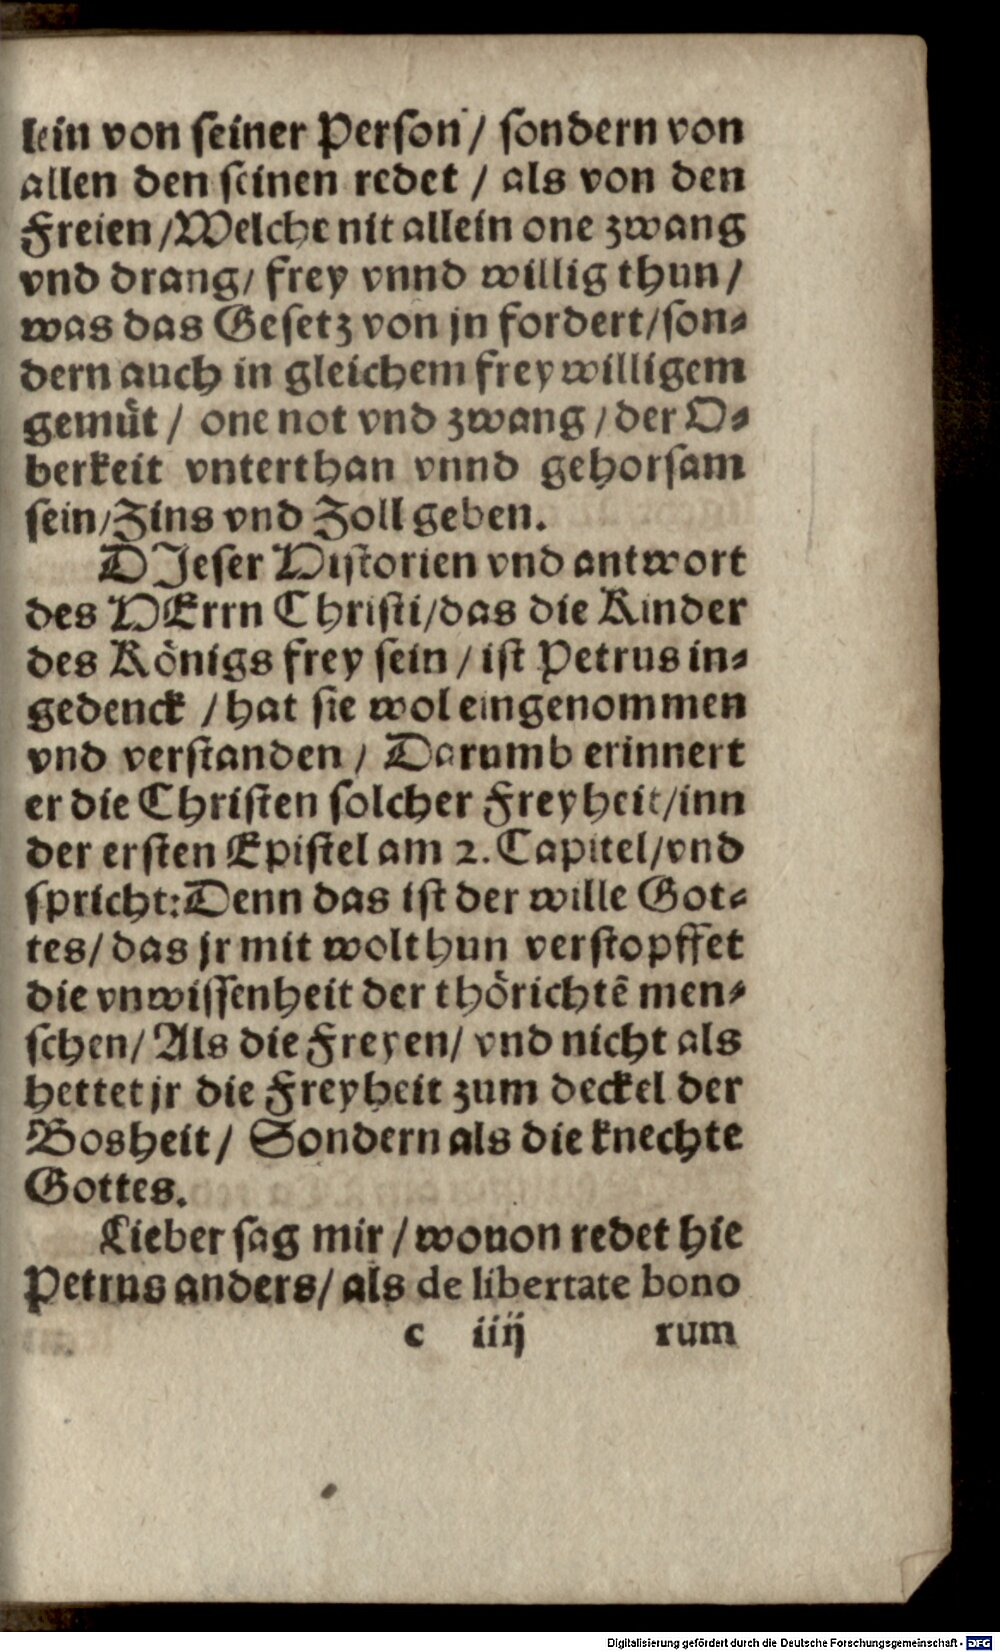 lein von seiner Person / sondern von
allen den seinen redet / als von den
Freien / Welche nit allein one zwang
vnd drang / frey vnnd willig thun /
was das Gesetz von jn fordert / son-
dern auch in gleichem freywilligem
gemüt / one not vnd zwang / der O-
berkeit vnterthan vnnd gehorsam
sein / Zins vnd Zoll geben.
DJeser Historien vnd antwort
des HErrn Christi / das die Kinder
des Königs frey sein / ist Petrus in-
gedenck / hat sie wol eingenommen
vnd verstanden / Darumb erinnert
er die Christen solcher Freyheit / inn
der ersten Epistel am 2. Capitel / vnd
spricht: Denn das ist der wille Got-
tes / das jr mit wolthun verstopffet
die vnwissenheit der thörichtē men-
schen / Als die Freyen / vnd nicht als
hettet jr die Freyheit zum deckel der
Bosheit / Sondern als die knechte
Gottes.
Lieber sag mir / wouon redet hie
Petrus anders / als de libertate bono
c iiij rum
Digitalisierung gefördert durch die Deutsche Forschungsgemeinschaft - DFG